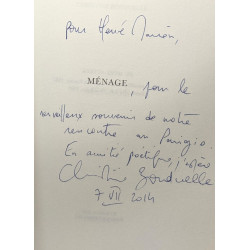 pour Hervé
MÉNAGE, pour le
merveilleux souvenir de notre
rencontre au
En amitié poétique, j'espère
Christine
7 VII 2014